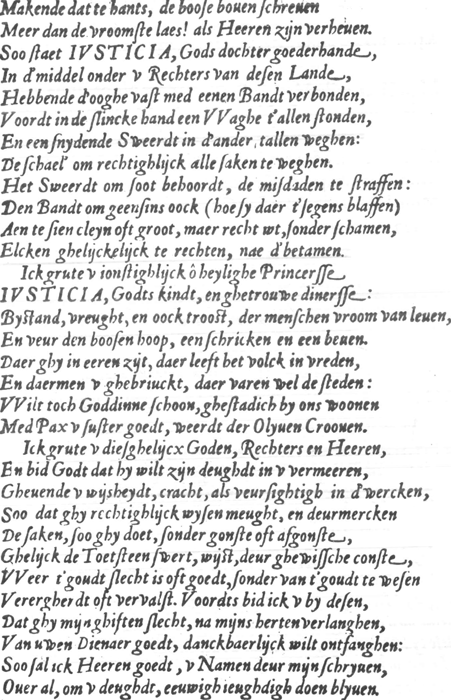 Makende dat te hants, de boose bouen schreuen
Meer dan de vroomste laes! als Heeren zijn verheuen.
Soo staet IVSTICIA, Gods dochter goederhande,
In d'middel onder v Rechters van desen Lande,
Hebbende d'ooghe vast med eenen Bandt verbonden,
Voordt in de slincke hand een VVaghe t'allen stonden,
En een snydende Sweerdt in d'ander, tallen weghen:
De schael' om rechtighlijck alle saken te weghen.
Het Sweerdt om soot behoordt, de misdaden te straffen:
Den Bandt om geensins oock (hoe sy daer t'segens blaffen)
Aen te sien cleyn oft groot, maer recht wt, sonder schamen,
Elcken ghelijckelijck te rechten, nae d'betamen.
Ick grute v ionstighlijck ô heylighe Princersse
IVSTICIA, Godts kindt, en ghetrouwe dinersse:
Bystand, vreught, en oock troost, der menschen vroom van leuen,
En veur den boosen hoop, een schricken en een beuen.
Daer ghy in eeren zyt, daer leeft het volck in vreden,
En daermen v ghebriuckt, daer varen wel de steden:
VVilt toch Goddinne schoon, ghestadich by ons woonen
Med Pax v suster goedt, weerdt der Olyuen Croonen.
Ick grute v diesghelijcx Goden, Rechters en Heeren,
En bid Godt dat hy wilt zijn deughdt in v vermeeren,
Gheuende v wijsheydt, cracht, als veursightigh in d'wercken,
Soo dat ghy rechtighlijck wysen meught, en deurmercken
De saken, soo ghy doet, sonder gonste oft afgonste,
Ghelijck de Toetsteen swert, wijst, deur ghewissche conste,
VVeer t'goudt slecht is oft goedt, sonder van t'goudt te wesen
Verergherdt oft vervalst. Voordts bid ick v by desen,
Dat ghy mijn ghiften slecht, na mijns herten verlanghen,
Van uwen Dienaer goedt, danckbaerlijck wilt ontfanghen:
Soo sal ick Heeren goedt, v Namen deur mijn schryuen,
Ouer al, om v deughdt, eeuwigh ieughdigh doen blyuen.